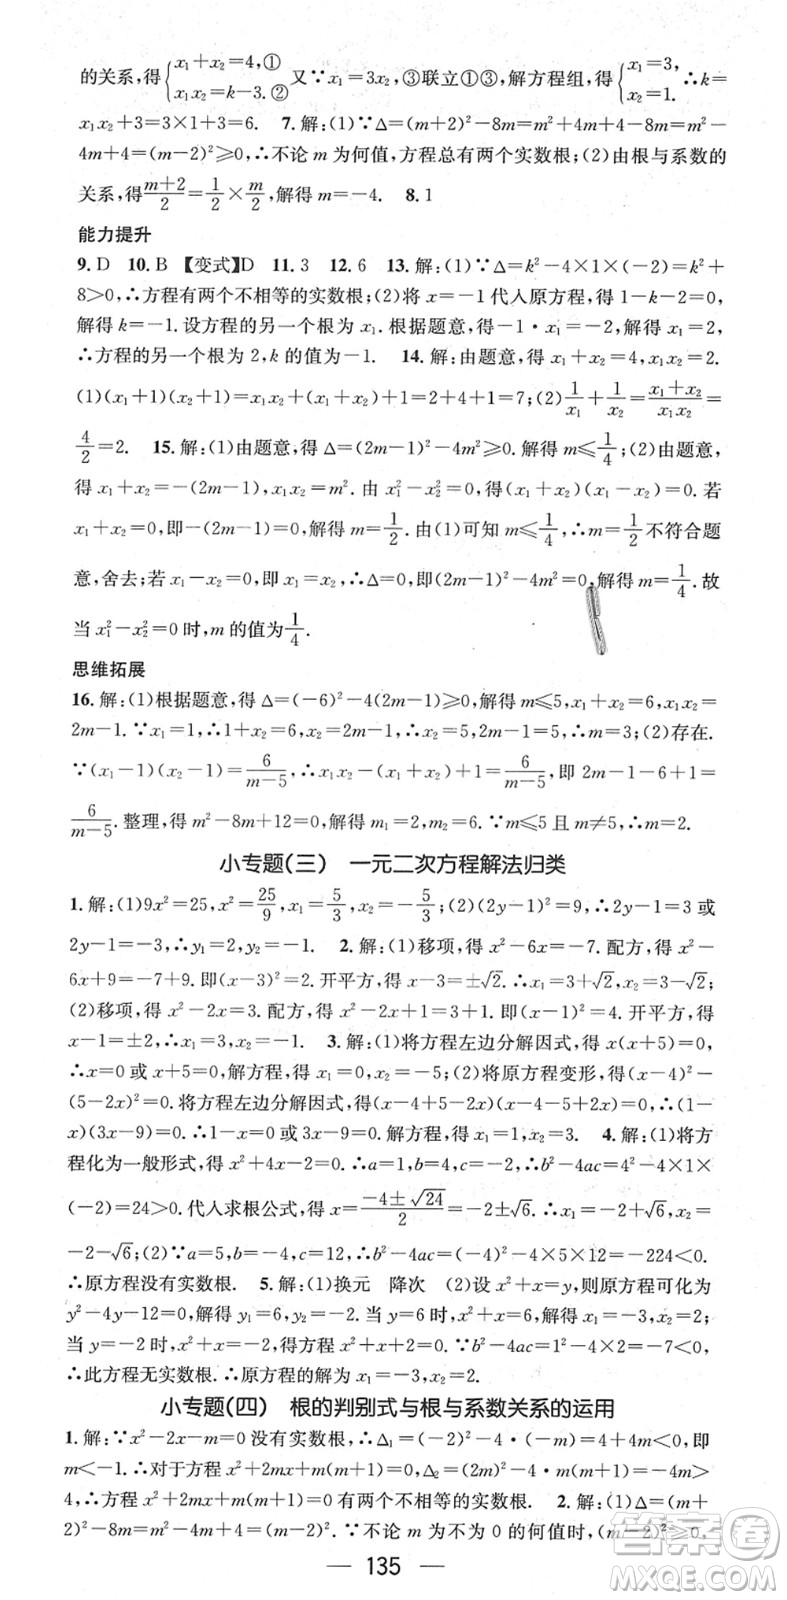 的关系,得{x₁+x₂=4,① x₁x₂=k-3.② 又∵x₁=3x₂,③联立①③,解方程组,得{x₁=3, x₂=1. ∴k=
x₁x₂+3=3×1+3=6. 7.解:(1)∵Δ=(m+2)²-8m=m²+4m+4-8m=m²-
4m+4=(m-2)²≥0,∴不论 m 为何值,方程总有两个实数根;(2)由根与系数的
关系,得(m+2)/2=1/2×m/2,解得 m=-4. 8.1
能力提升
9.D 10.B 【变式】D 11.3 12.6 13.解:(1)∵Δ=k²-4×1×(-2)=k²+
8>0,∴方程有两个不相等的实数根;(2)将 x=-1 代入原方程,得 1-k-2=0,
解得 k=-1.设方程的另一个根为 x₁.根据题意,得-1·x₁=-2,解得 x₁=2,
∴方程的另一个根为 2,k 的值为-1. 14.解:由题意,得 x₁+x₂=4,x₁x₂=2.
(1)(x₁+1)(x₂+1)=x₁x₂+(x₁+x₂)+1=2+4+1=7;(2)1/x₁+1/x₂=(x₁+x₂)/(x₁x₂)=
4/2=2. 15.解:(1)由题意,得 Δ=(2m-1)²-4m²≥0.解得 m≤1/4;(2)由题意,
得 x₁+x₂=-(2m-1),x₁x₂=m².由 x₁²-x₂²=0,得(x₁+x₂)(x₁-x₂)=0.若
x₁+x₂=0,即-(2m-1)=0,解得 m=1/2.由(1)可知 m≤1/4,∴m=1/2不符合题
意,舍去;若 x₁-x₂=0,即 x₁=x₂,∴Δ=0,即(2m-1)²-4m²=0,解得 m=1/4.故
当 x₁²-x₂²=0 时,m 的值为1/4.
思维拓展
16.解:(1)根据题意,得 Δ=(-6)²-4(2m-1)≥0,解得 m≤5,x₁+x₂=6,x₁x₂=
2m-1.∵x₁=1,∴1+x₂=6,x₂=2m-1,∴x₂=5,2m-1=5,∴m=3;(2)存在.
∵(x₁-1)(x₂-1)=6/(m-5),∴x₁x₂-(x₁+x₂)+1=6/(m-5),即 2m-1-6+1=
6/(m-5).整理,得 m²-8m+12=0,解得 m₁=2,m₂=6.∵m≤5 且 m≠5,∴m=2.
小专题(三) 一元二次方程解法归类
1.解:(1)9x²=25,x²=25/9,x₁=5/3,x₂=-5/3;(2)(2y-1)²=9,∴2y-1=3 或
2y-1=-3,∴y₁=2,y₂=-1. 2.解:(1)移项,得 x²-6x=-7.配方,得 x²-
6x+9=-7+9.即(x-3)²=2.开平方,得 x-3=±√2.∴x₁=3+√2,x₂=3-√2;
(2)移项,得 x²-2x=3.配方,得 x²-2x+1=3+1.即(x-1)²=4.开平方,得
x-1=±2.∴x₁=3,x₂=-1. 3.解:(1)将方程左边分解因式,得 x(x+5)=0,
∴x=0 或 x+5=0.∴x₁=0,x₂=-5;(2)将原方程变形,得(x-4)²-
(5-2x)²=0.将方程左边分解因式,得(x-4+5-2x)(x-4-5+2x)=0,即
(1-x)(3x-9)=0.∴1-x=0 或 3x-9=0.解方程,得 x₁=1,x₂=3. 4.解:(1)将方
程化为一般形式,得 x²+4x-2=0.∴a=1,b=4,c=-2,∴b²-4ac=4²-4×1×
(-2)=24>0.代入求根公式,得 x=(-4±√24)/2=-2±√6.∴x₁=-2+√6,x₂=
-2-√6;(2)∵a=5,b=-4,c=12,∴b²-4ac=(-4)²-4×5×12=-224<0.
∴原方程没有实数根. 5.解:(1)换元 降次 (2)设 x²+x=y,则原方程可化为
y²-4y-12=0,解得 y₁=6,y₂=-2.当 y=6 时,x²+x=6,解得 x₁=-3,x₂=2;
当 y=-2 时,x²+x=-2,得方程 x²+x+2=0,∵b²-4ac=1²-4×2=-7<0,
∴此方程无实数根.∴原方程的解为 x₁=-3,x₂=2.
小专题(四) 根的判别式与根与系数关系的运用
1.解:∵x²-2x-m=0 没有实数根,∴Δ₁=(-2)²-4·(-m)=4+4m<0,即
m<-1.∴对于方程 x²+2mx+m(m+1)=0,Δ₂=(2m)²-4·m(m+1)=-4m>
4,∴方程 x²+2mx+m(m+1)=0 有两个不相等的实数根. 2.解:(1)∵Δ=(m+
2)²-8m=m²-4m+4=(m-2)².∵不论 m 为不为 0 的何值时,(m-2)²≥0,
135
答案圈
MXQE.COM